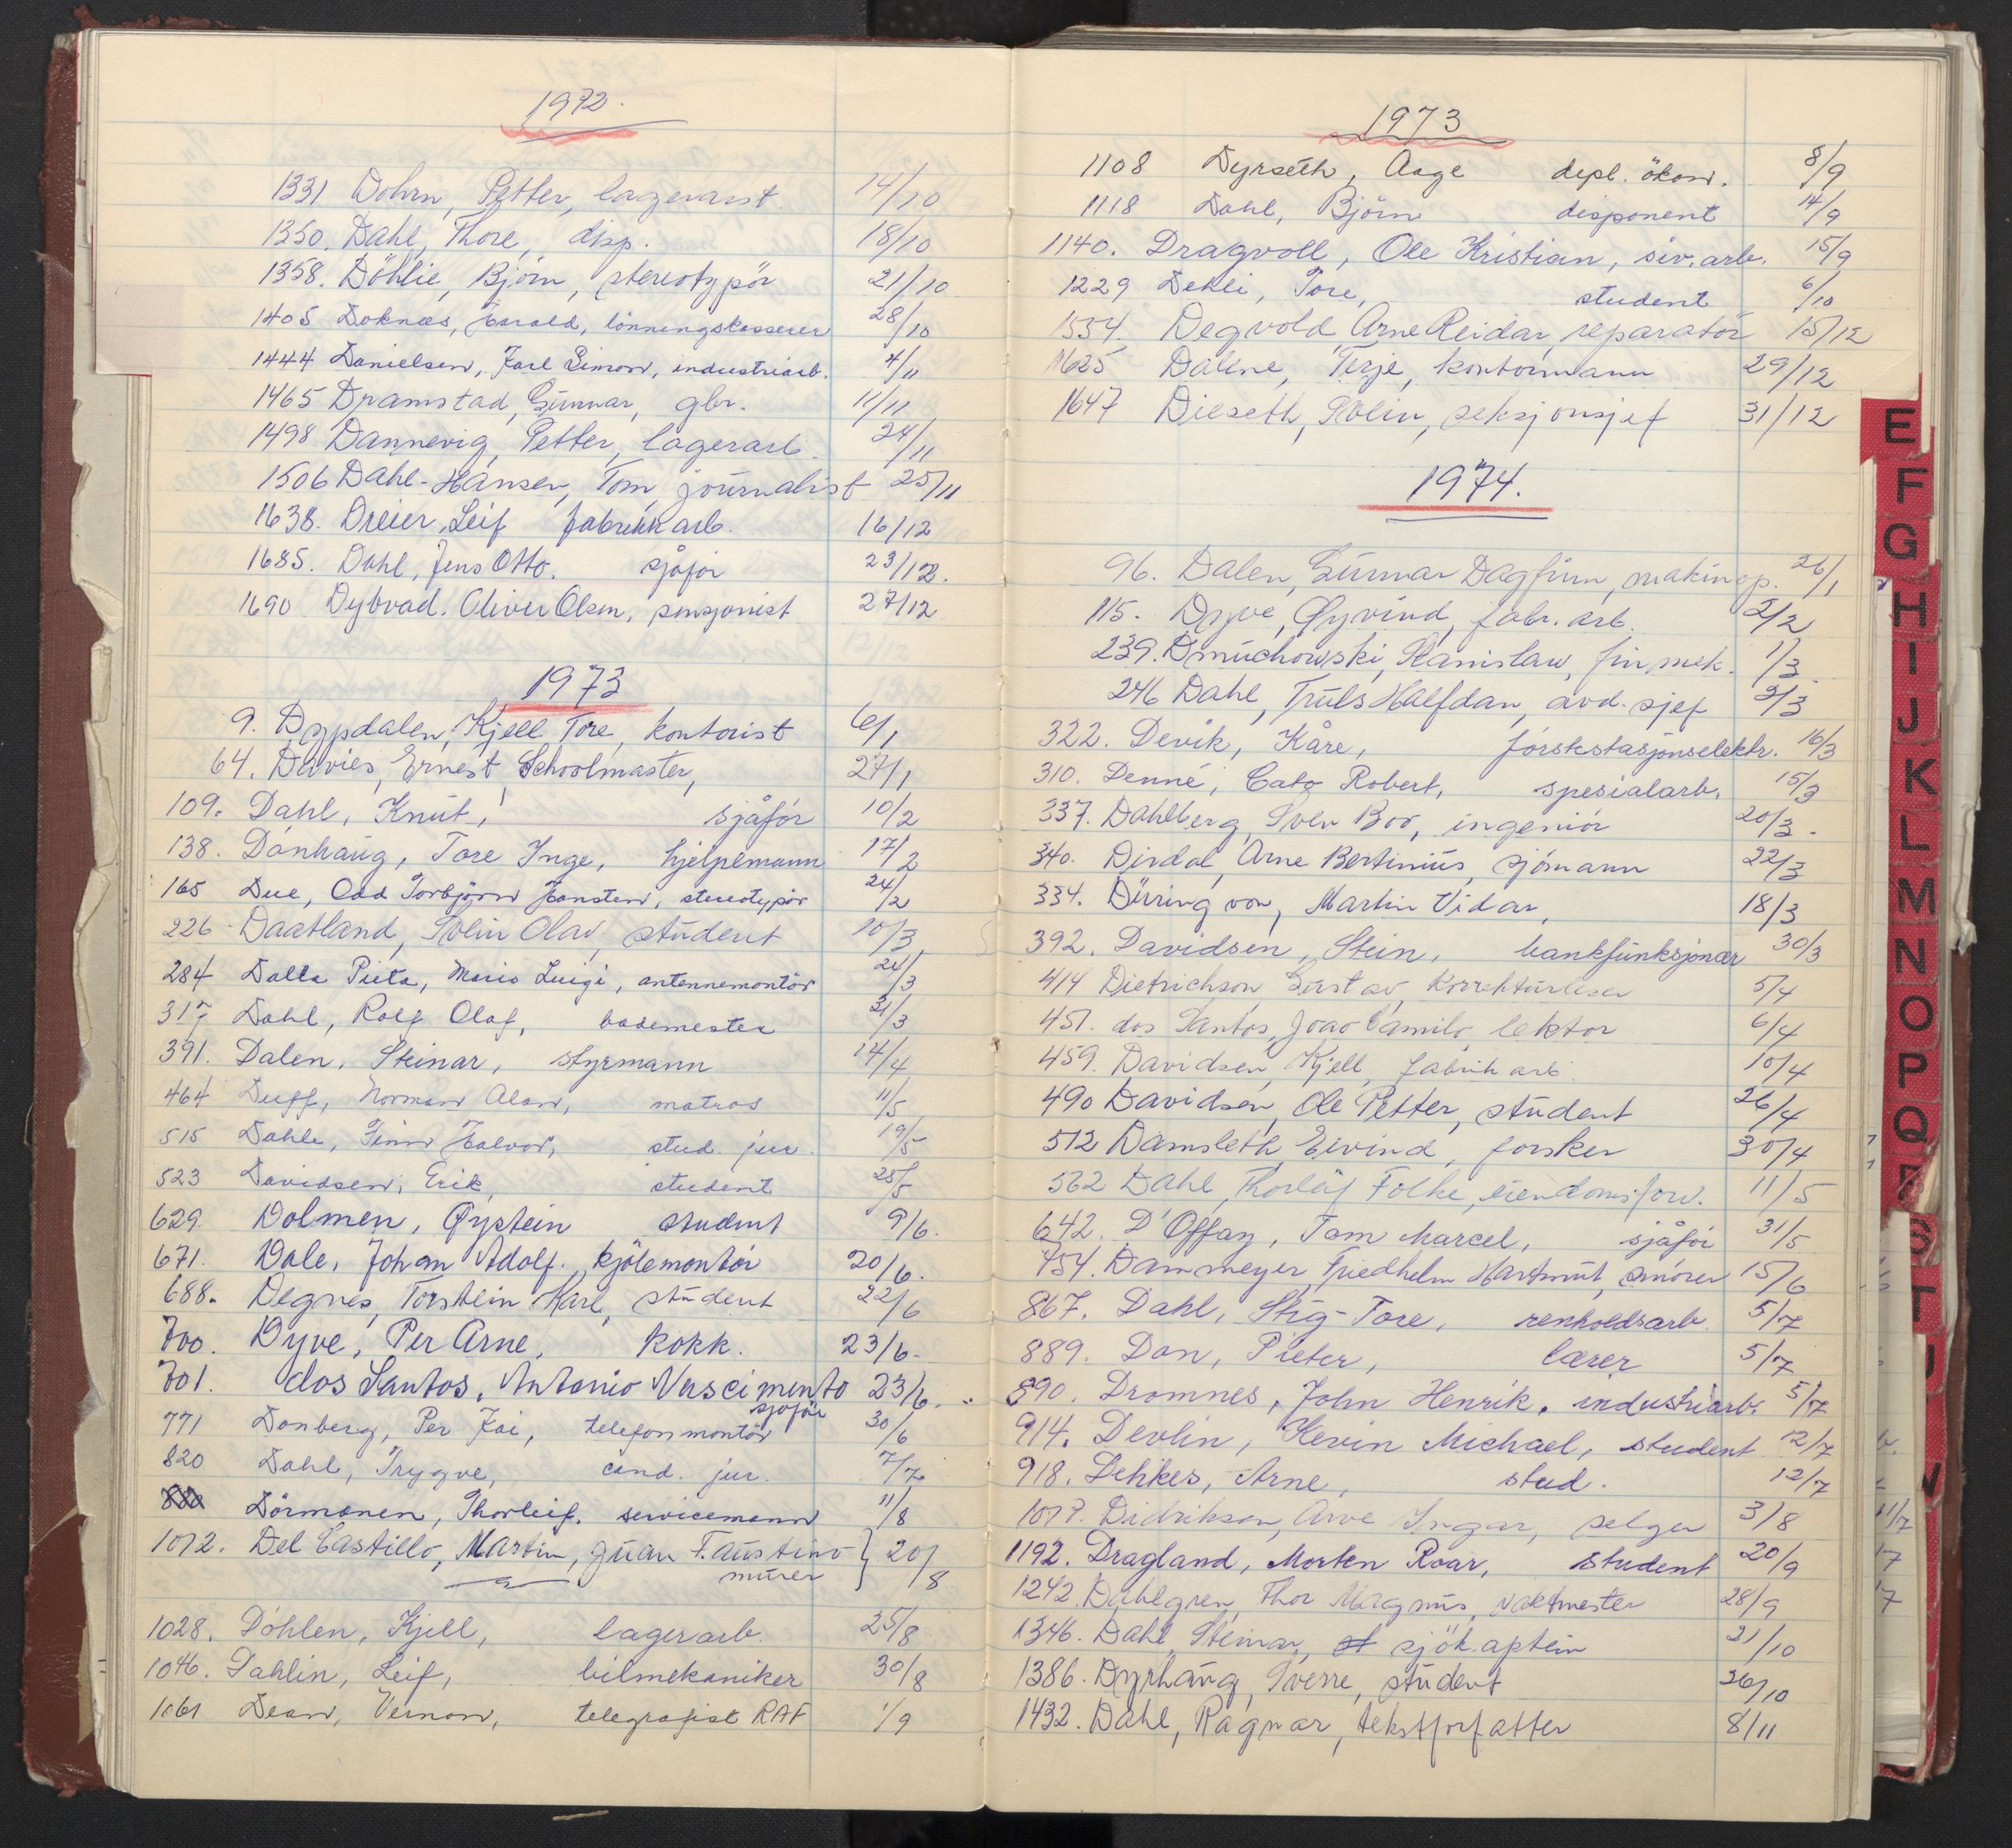 1972.
1331 Dohrn, Petter, lagerass. 14/10
1350. Dahl, Thore, disp. 18/10
1358. Döhlie, Björn, stereotypör 21/10
1405 Doknes, Harald, lönningskasserer 28/10
1444 Danielsen, Jarl Simon, industriarb. 4/11
1465 Dramstad, Gunnar, gbr. 11/11
1498 Dannevig, Petter, lagerarb. 24/11
1506 Dahl-Hansen, Tom, journalist 25/11
1638. Dreier, Leif fabrikkarb. 16/12
1685. Dahl, Jens Otto. sjåför 23/12.
1690 Dybvad. Oliver Olsen, pensjonist 27/12
1973
9. Dypdalen, Kjell Tore, kontorist 6/1
64. Davies, Ernest, Schoolmaster, 27/1
109. Dahl, Knut, sjåför 10/2
138. Dönhaug, Tore Inge, hjelpemann 17/2
165 Due, Odd Torbjörn Hansten, stereotypör 24/2
226 Daatland, Svein Olav, student 10/3
284 Dalla Pieta, Mario Luigi, antennemontör 24/3
317 Dahl, Rolf Olaf, bademester 31/3
391. Dalen, Steinar, styrmann 14/4
464 Duff, Norman Alan, matros 11/5
515 Dahle, Finn Halvor, stud. jur. 19/5
523 Davidsen, Erik, student 25/5
629. Dolmen, Øystein student 9/6.
671. Dale, Johan Adolf. kjölemontör 20/6.
688. Degnes, Torstein Karl, student 22/6
700. Dyve, Per Arne, kokk. 23/6.
701. dos Santos, Antonio Nascimento 23/6.
sjåför
771 Danberg, Per Kai, telefonmontör 30/6
820 Dahl, Trygve, cand. jur. 7/7
Dörmenen, Thorleif. servicemann 11/8
1012. Del Castillo, Martin, Juan Faustino } 20/8
murer
1028. Döhlen, Kjell, lagerarb. 25/8
1046. Dahlin, Leif, bilmekaniker 30/8
1061 Dean, Vernon, telegrafist RAF 1/9
1973
1108 Dyrseth, Aage depl. ökon. 8/9
1118 Dahl, Björn disponent 14/9
1140. Dragvoll, Ole Kristian, siv. ark. 15/9
1229 Dehli, Tore, student 6/10
1554. Degvold, Arne Reidar, reparatör 15/12
1625 Daline, Terje, kontormann 29/12
1647 Dieseth, Svein, seksjonsjef 31/12
1974.
96. Dalen, Gunnar Dagfinn, maskinop. 26/1
115. Dyve, Øyvind, fabr. arb. 2/2
239. Dmuchowski, Stanislaw, finmek. 1/3.
246 Dahl, Truls Halfdan, avd. sjef 2/3
322. Devik, Kåre, förstestasjonselektr. 16/3
310. Denné, Cato Robert, spesialarb. 15/3
337. Dahlberg, Sven Boo, ingeniör 20/3.
340. Dirdal, Arne Bertinius, sjömann 22/3
334. Düring von, Martin Vidar, 18/3
392. Davidsen, Stein, bankfunksjonær 30/3
414 Dietrichson, Gustav, korrekturleser 5/4
451. dos Santos, Joao Camilo, lektor 6/4
459. Davidsen, Kjell, fabrik arb. 10/4
490 Davidsen, Ole Petter, student 26/4
512 Damsleth Eivind, forsker 30/4
562 Dahl, Thorleif Folke, eiendomsforv. 11/5
642. D'Offay, Tom Marcel, sjåför 31/5
754. Dammeyer, Friedhelm Hartmut, smörer 15/6
867. Dahl, Stig-Tore, renholdsarb. 5/7
889. Dan, Pieter, lærer 5/7
890. Dromnes, John Henrik, industriarb. 5/7
914. Devlin, Kevin Michael, student 12/7
918. Dehkes, Arne, stud. 12/7
1017. Didrikson, Arve Ingar, selger 3/8
1192. Dragland, Morten Roar, student 20/9
1242. Dahlgren, Thor Magnus, vaktmester 28/9
1346. Dahl, Steinar, sjökaptein 21/10
1386. Dyrhaug, Sverre, student 26/10
1432. Dahl, Ragnar, tekstforfatter 8/11
E
F
G
H
I
J
K
L
M
N
O
P
Q
S
T